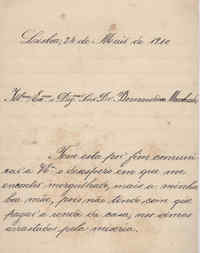 Lisboa, 24 de Maio de 1910
Illmo Exmo e Digmo Snr Dr. Bernardino Machado
Tem esta por fim communi-
car a V. o desespero em que me
encontro mergulhado, mais a minha
boa mãe, pois não tendo com que
pagar a renda da casa, nos vemos
arrastados pela miseria.